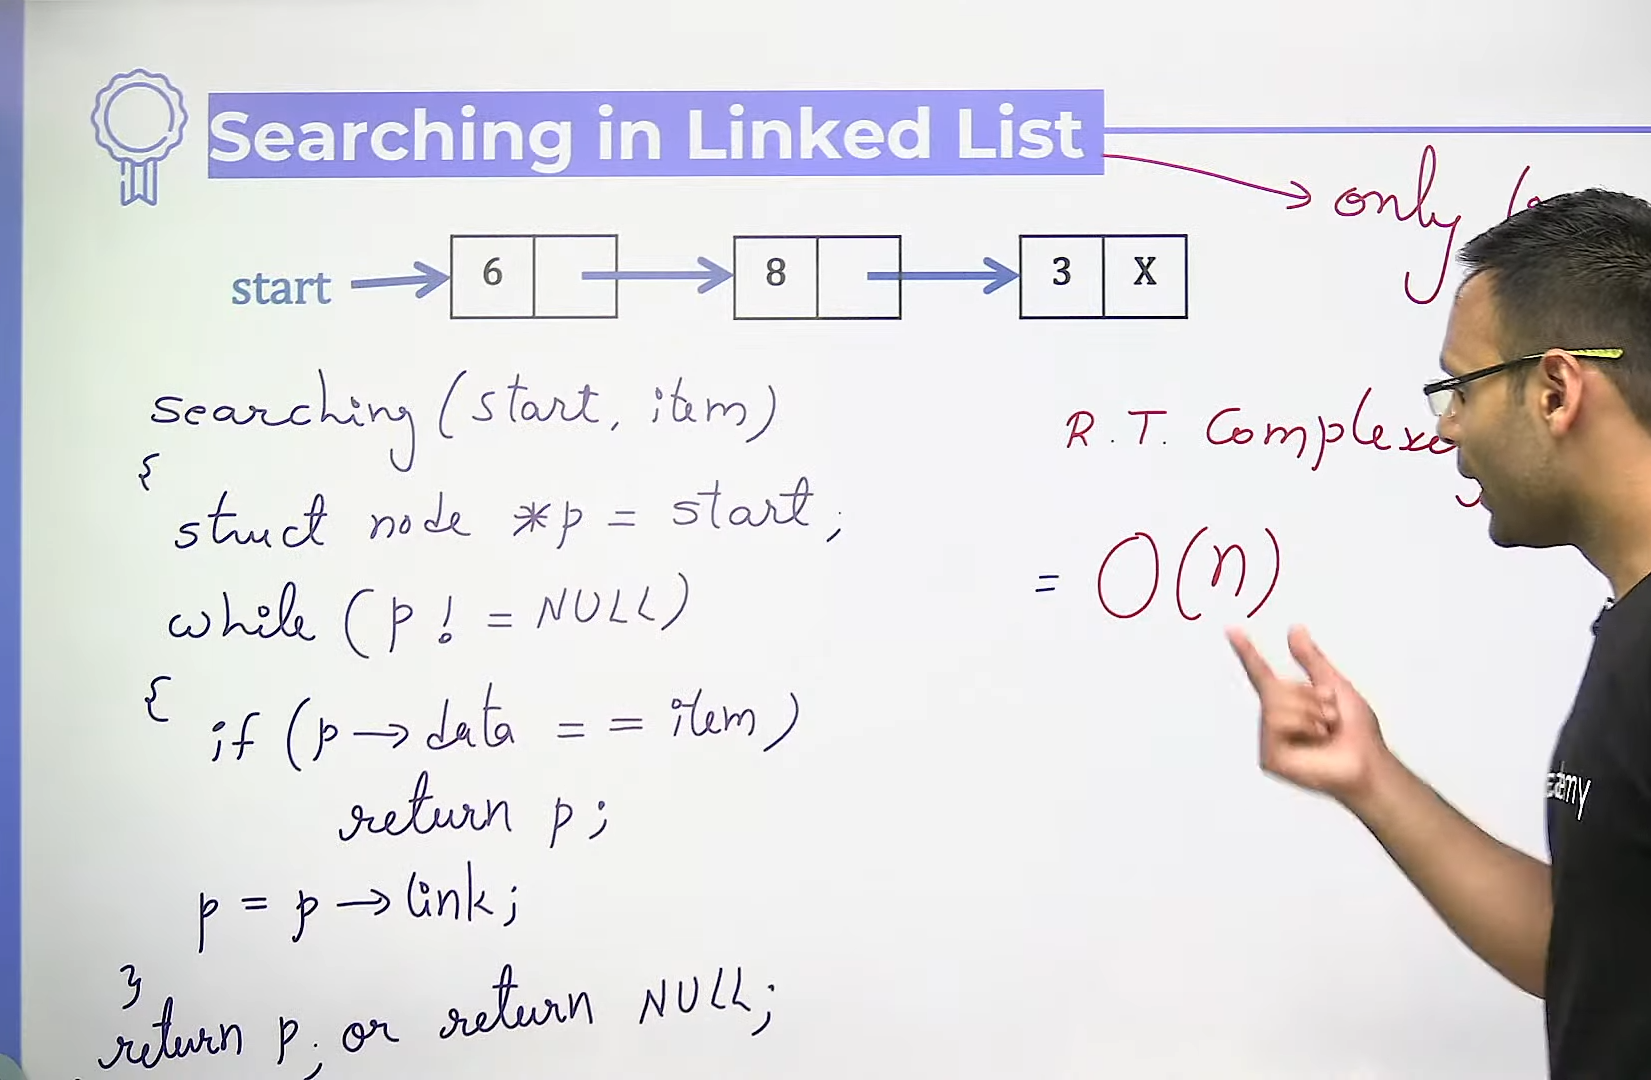 Searching in Linked List
only
start 6 8 3 X
searching (start, item)
{
struct node *p = start;
while (p != NULL)
{
if (p → data == item)
return p;
p = p → link;
}
return p; or return NULL;
R.T.
= O(n)